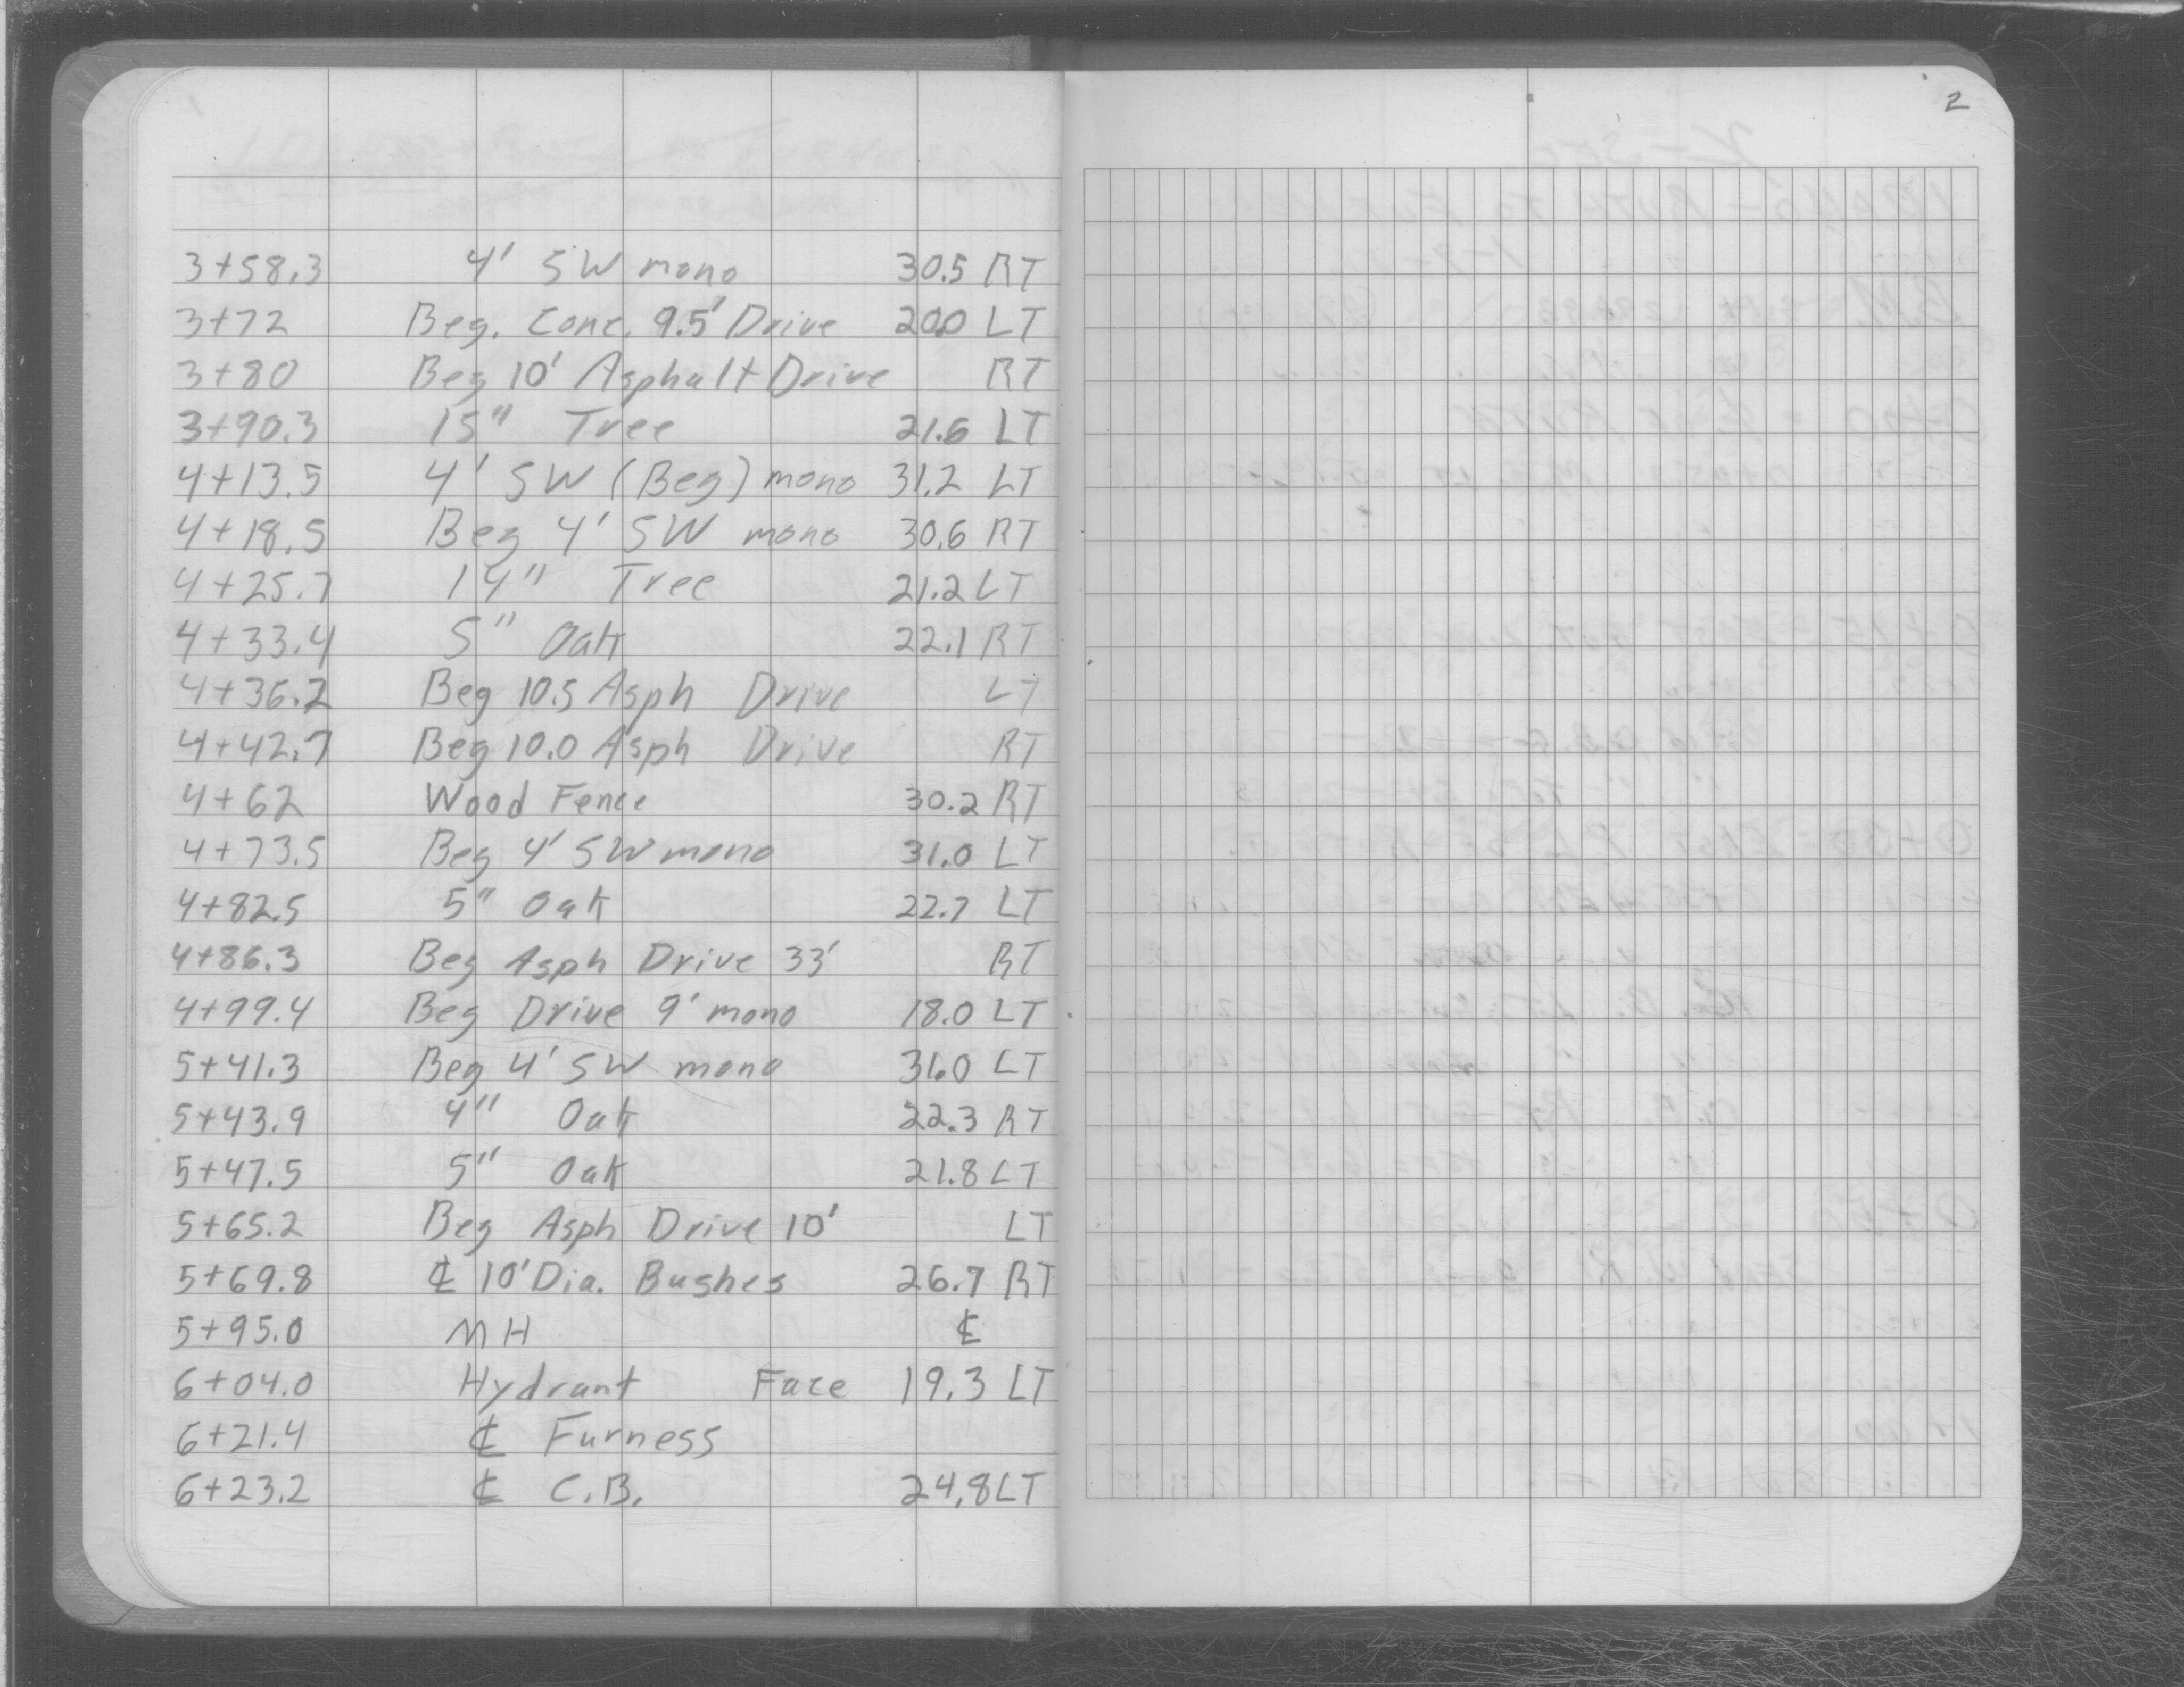 2
3+58.3 4' SW mono 30.5 RT
3+72 Beg. Conc. 9.5' Drive 20.0 LT
3+80 Beg 10' Asphalt Drive RT
3+90.3 15" Tree 21.6 LT
4+13.5 4' SW (Beg) mono 31.2 LT
4+18.5 Beg 4' SW mono 30.6 RT
4+25.7 14" Tree 21.2 LT
4+33.4 5" Oak 22.1 RT
4+36.2 Beg 10.5 Asph Drive LT
4+42.7 Beg 10.0 Asph Drive RT
4+62 Wood Fence 30.2 RT
4+73.5 Beg 4' SW mono 31.0 LT
4+82.5 5" Oak 22.7 LT
4+86.3 Beg Asph Drive 33' RT
4+99.4 Beg Drive 9' mono 18.0 LT
5+41.3 Beg 4' SW mono 31.0 LT
5+43.9 4" Oak 22.3 RT
5+47.5 5" Oak 21.8 LT
5+65.2 Beg Asph Drive 10' LT
5+69.8 ℄ 10' Dia. Bushes 26.7 RT
5+95.0 MH ℄
6+04.0 Hydrant Face 19.3 LT
6+21.4 ℄ Furness
6+23.2 ℄ C.B. 24.8 LT